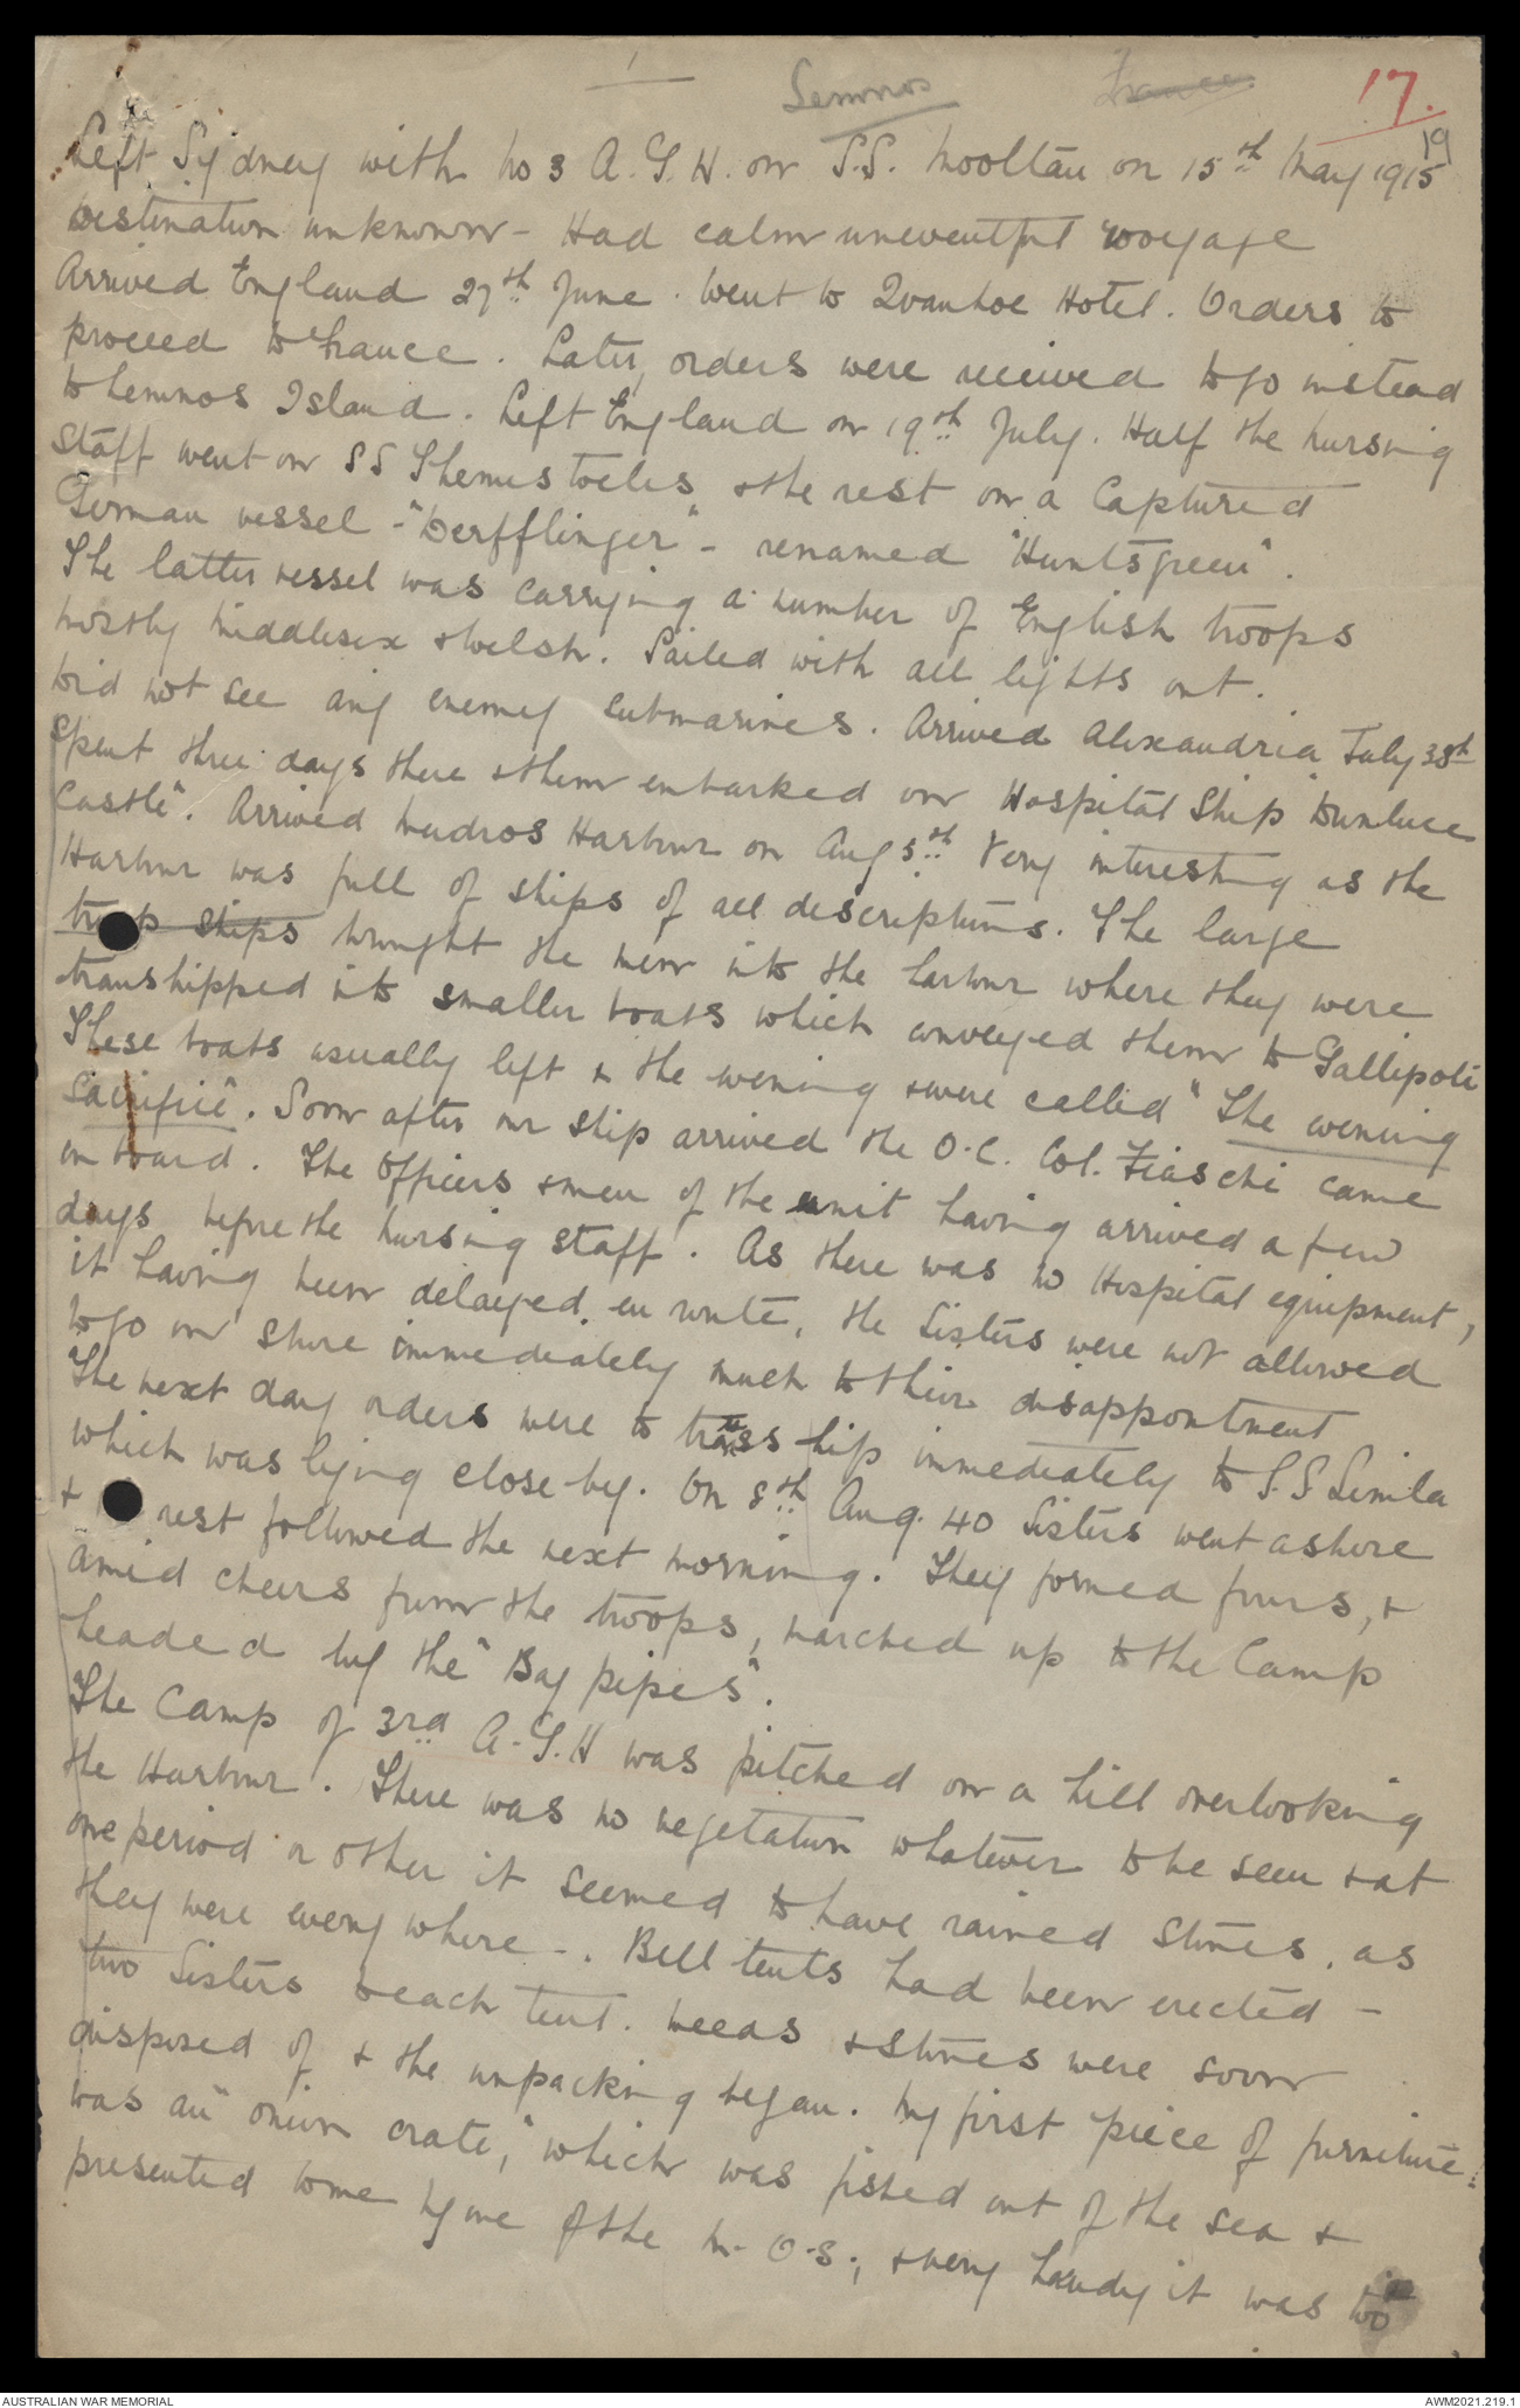 1
Lemnos
France
17.
19
Left Sydney with No 3 A.G.H. on S.S. Mooltan on 15th May 1915
Destination unknown - Had calm uneventful voyage
Arrived England 27th June. Went to Ivanhoe Hotel. Orders to
proceed to France. Later, orders were received to go instead
to Lemnos Island. Left England on 19th July. Half the Nursing
Staff went on SS Themistocles & the rest on a Captured
German vessel - "Derfflinger" - renamed "Huntsgreen".
The latter vessel was carrying a number of English troops
mostly Middlesex & Welsh. Sailed with all lights out.
Did not see any enemy submarines. Arrived Alexandria July 30th
Spent three days there & then embarked on Hospital Ship "Dunluce
Castle". Arrived Mudros Harbour on Aug 5th. Very interesting as the
Harbour was full of ships of all descriptions. The large
troop ships brought the men into the harbour where they were
transhipped into smaller boats which conveyed them to Gallipoli
These boats usually left in the evening & were called "The evening
Sacrifice". Soon after our ship arrived the O.C. Col. Fiaschi came
on board. The Officers & men of the unit having arrived a few
days before the nursing staff. As there was no Hospital equipment,
it having been delayed en route, the Sisters were not allowed
to go on shore immediately much to their disappointment
The next day orders were to transship immediately to S.S Simla
which was lying close by. On 8th Aug. 40 Sisters went ashore
& rest followed the next morning. They formed fours, &
amid cheers from the troops, marched up to the Camp
headed by the "Bag pipes".
The Camp of 3rd A.G.H was pitched on a hill overlooking
the Harbour. There was no vegetation whatever to be seen & at
one period or other it seemed to have rained stones, as
they were every where -. Bell tents had been erected -
two Sisters to each tent. Weeds & stones were soon
disposed of & the unpacking began. My first piece of furniture
was an "onion crate," which was fished out of the sea &
presented to me by one of the M.O.S., & very handy it was too
AUSTRALIAN WAR MEMORIAL
AWM2021.219.1